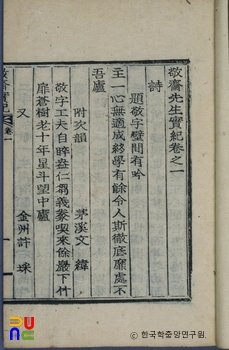 敬齋先生實紀卷之一
詩
題敬字壁間有吟
主一心無適成終學有餘令人斯徹底靡處不
吾廬
附次韻 茅溪文 緯
敬字工夫自睟盎仁芻義豢喫來餘巖下竹
扉蒼樹老十年星斗望中廬
又 金州許 珠
敬齋實紀 卷一
PUNC
한국학중앙연구원